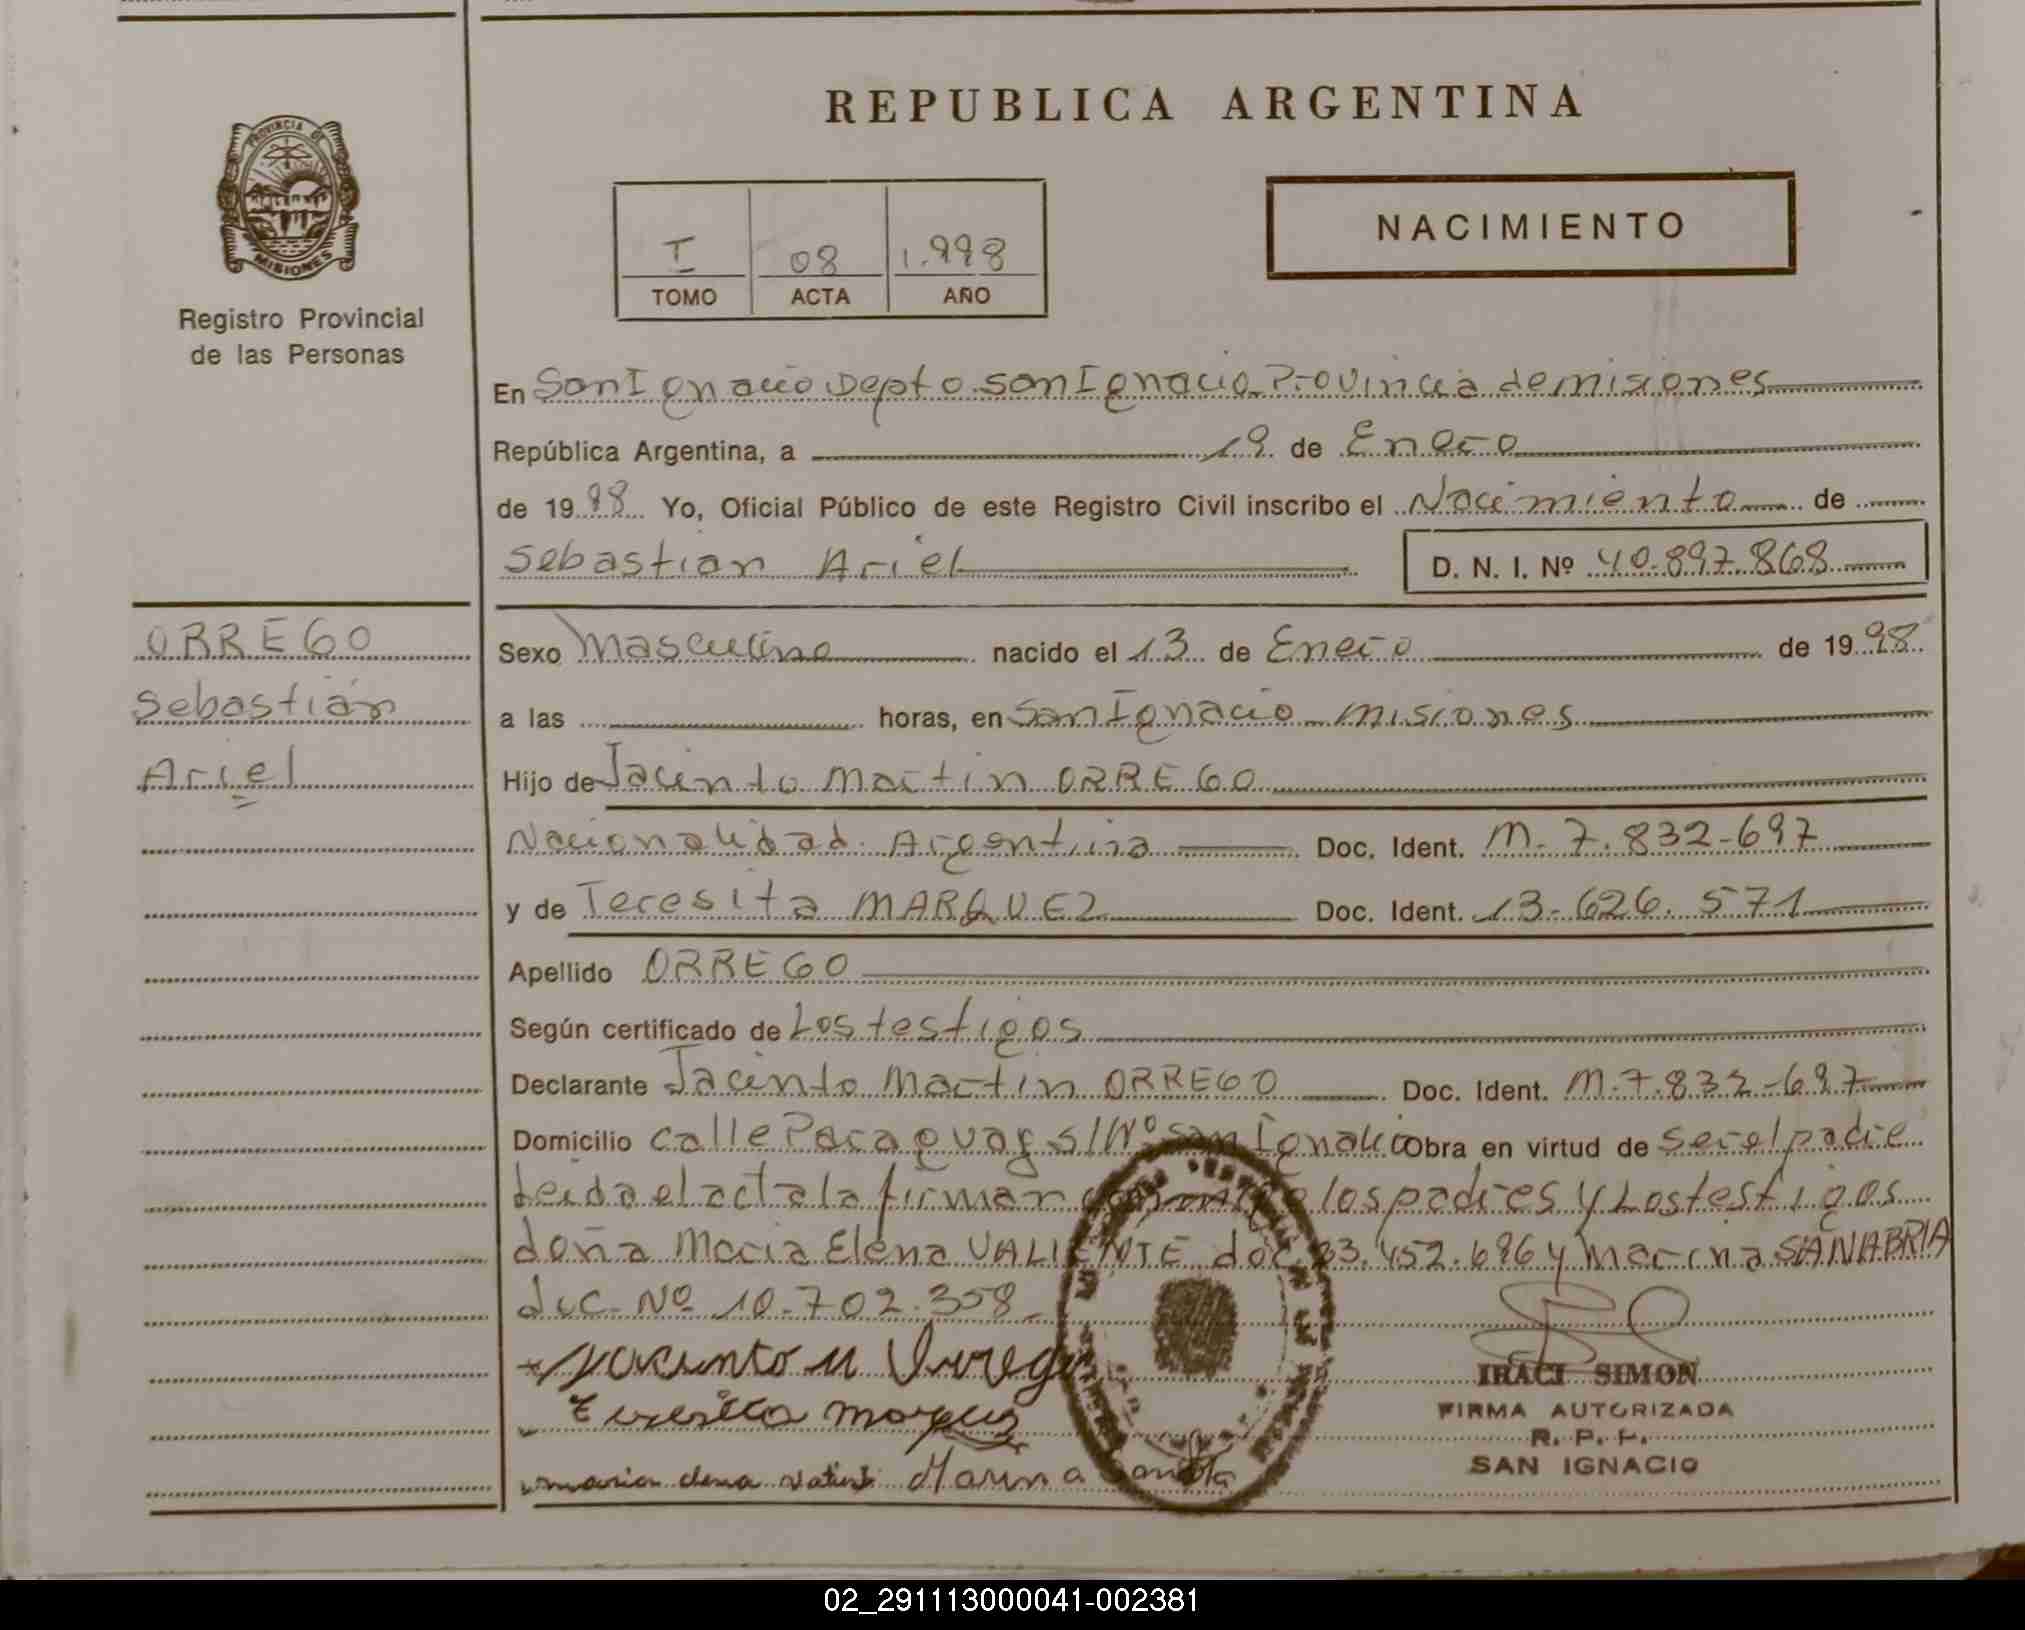 REPUBLICA ARGENTINA
PROVINCIA DE
MISIONES
Registro Provincial
de las Personas
I 08 1.998
TOMO ACTA AÑO
NACIMIENTO
En San Ignacio Depto. San Ignacio Provincia de misiones
República Argentina, a 19 de Enero
de 1998 Yo, Oficial Público de este Registro Civil inscribo el Nacimiento de
Sebastian Ariel D. N. I. Nº 40.897.868
ORREGO
Sebastián
Ariel
Sexo Masculino nacido el 13 de Enero de 1998
a las horas, en San Ignacio misiones
Hijo de Jacinto Martin ORREGO
Nacionalidad Argentina Doc. Ident. M. 7.832-697
y de Teresita MARQUEZ Doc. Ident. 13-626.571
Apellido ORREGO
Según certificado de Los testigos
Declarante Jacinto Martin ORREGO Doc. Ident. M.7.832-697
Domicilio calle Paraguay S/Nº San Ignacio Obra en virtud de ser el padre
leida el acta la firman los padres y Los testigos
doña Maria Elena VALIENTE doc. 23.452.696 y Marina SANABRIA
doc. Nº 10.702.358
Jacinto M Orrego
Teresita Marquez
maria elena Marina
IRACI SIMON
FIRMA AUTORIZADA
R. P. P.
SAN IGNACIO
02_291113000041-002381